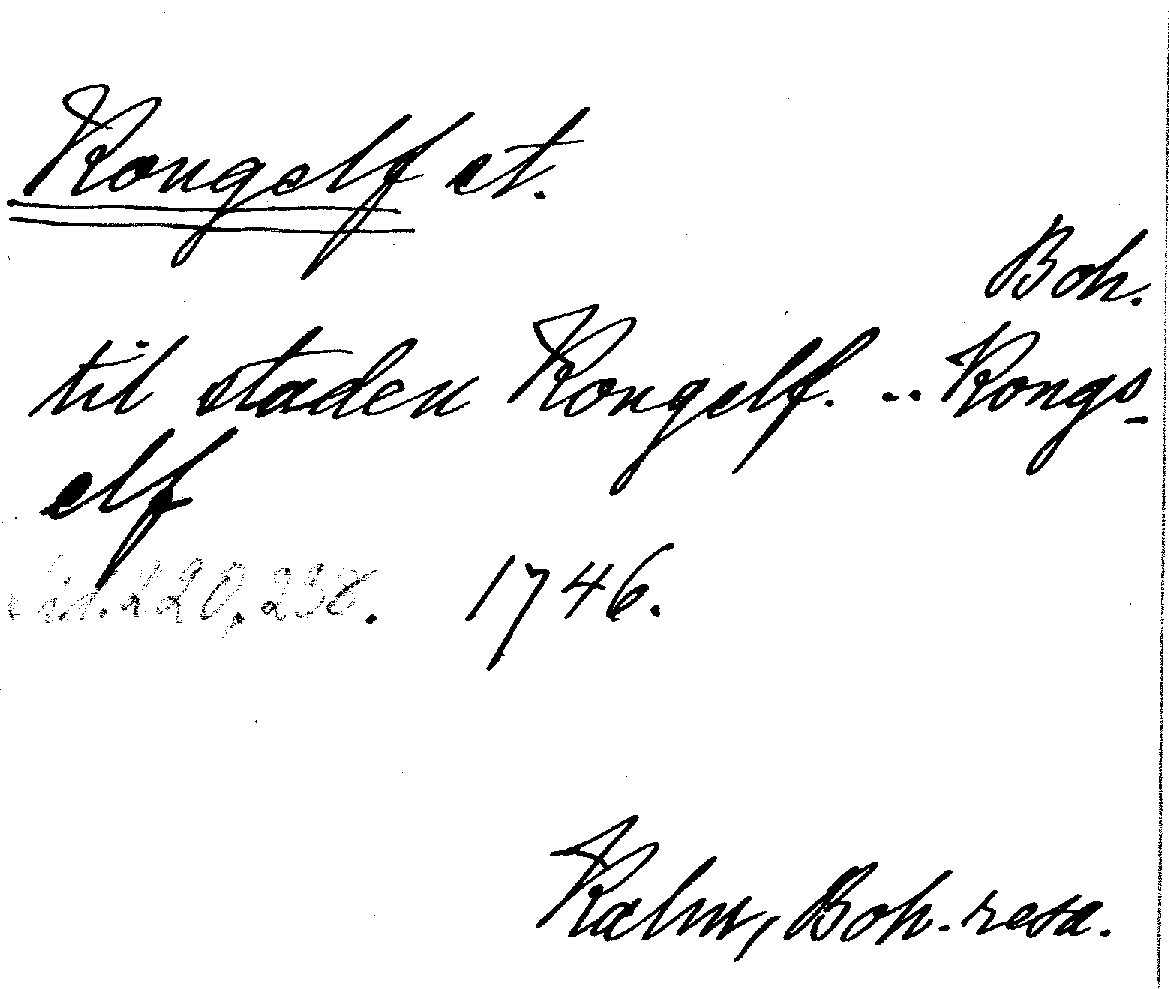 Kongelf st.
Boh.
til staden Kongelf. .. Kongs-
elf
sid. 220, 238. 1746.
Kalm, Boh. resa.